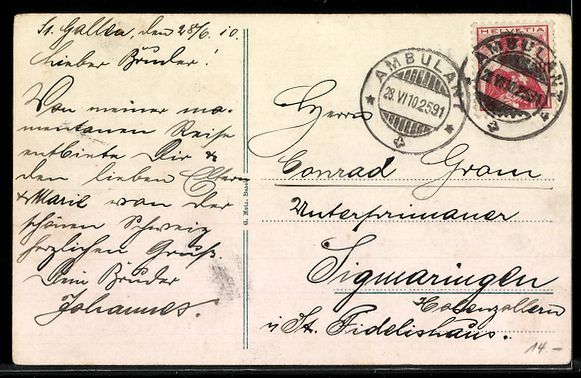 St. Gallen, den 28/6. 10.
Lieber Bruder!
Von meiner mo-
mentanen Reise
entbiete Dir &
den lieben Eltern
& Marie von der
schönen Schweiz
herzlichen Gruß.
Dein Bruder
Johannes.
HELVETIA
AMBULANT
28.VI.10.2591
AMBULANT
28.VI.10.2591
Herrn
Conrad Grom
Unterprimaner
Sigmaringen
Hohenzollern
i/ St. Fidelishaus.
14.-